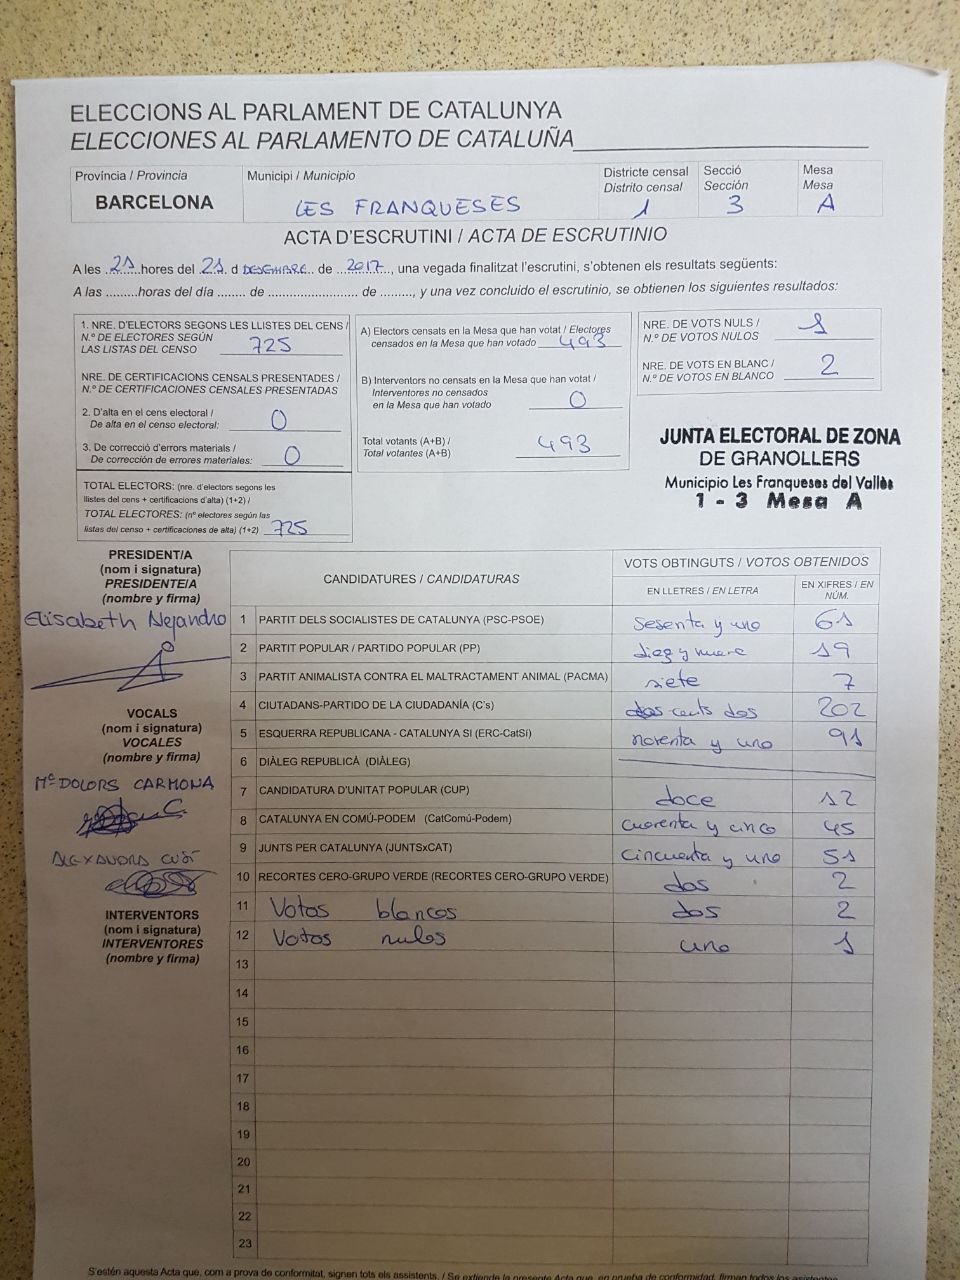 ELECCIONS AL PARLAMENT DE CATALUNYA
ELECCIONES AL PARLAMENTO DE CATALUÑA
Província / Provincia
BARCELONA
Municipi / Municipio
LES FRANQUESES
Districte censal
Distrito censal
1
Secció
Sección
3
Mesa
Mesa
A
ACTA D'ESCRUTINI / ACTA DE ESCRUTINIO
A les .21.hores del .21. d DESEMBRE.. de ..2017.., una vegada finalitzat l'escrutini, s'obtenen els resultats següents:
A las .........horas del día ........ de .......................... de ........., y una vez concluido el escrutinio, se obtienen los siguientes resultados:
1. NRE. D'ELECTORS SEGONS LES LLISTES DEL CENS /
N.º DE ELECTORES SEGÚN
LAS LISTAS DEL CENSO 725
NRE. DE CERTIFICACIONS CENSALS PRESENTADES /
N.º DE CERTIFICACIONES CENSALES PRESENTADAS
2. D'alta en el cens electoral /
De alta en el censo electoral: 0
3. De correcció d'errors materials /
De corrección de errores materiales: 0
TOTAL ELECTORS: (nre. d'electors segons les
llistes del cens + certificacions d'alta) (1+2) /
TOTAL ELECTORES: (nº electores según las
listas del censo + certificaciones de alta) (1+2) 725
A) Electors censats en la Mesa que han votat / Electores
censados en la Mesa que han votado 493
B) Interventors no censats en la Mesa que han votat /
Interventores no censados
en la Mesa que han votado 0
Total votants (A+B) /
Total votantes (A+B) 493
NRE. DE VOTS NULS /
N.º DE VOTOS NULOS 1
NRE. DE VOTS EN BLANC /
N.º DE VOTOS EN BLANCO 2
JUNTA ELECTORAL DE ZONA
DE GRANOLLERS
Municipio Les Franqueses del Vallès
1 - 3 Mesa A
PRESIDENT/A
(nom i signatura)
PRESIDENTE/A
(nombre y firma)
Elisabeth Alejandro
VOCALS
(nom i signatura)
VOCALES
(nombre y firma)
Mª DOLORS CARMONA
ALEXANDRA CUSÍ
INTERVENTORS
(nom i signatura)
INTERVENTORES
(nombre y firma)
CANDIDATURES / CANDIDATURAS
VOTS OBTINGUTS / VOTOS OBTENIDOS
EN LLETRES / EN LETRA
EN XIFRES / EN NÚM.
1 PARTIT DELS SOCIALISTES DE CATALUNYA (PSC-PSOE) sesenta y uno 61
2 PARTIT POPULAR / PARTIDO POPULAR (PP) diez y nueve 19
3 PARTIT ANIMALISTA CONTRA EL MALTRACTAMENT ANIMAL (PACMA) siete 7
4 CIUTADANS-PARTIDO DE LA CIUDADANÍA (C's) dos cents dos 202
5 ESQUERRA REPUBLICANA - CATALUNYA SI (ERC-CatSí) noventa y uno 91
6 DIÀLEG REPUBLICÀ (DIÀLEG)
7 CANDIDATURA D'UNITAT POPULAR (CUP) doce 12
8 CATALUNYA EN COMÚ-PODEM (CatComú-Podem) cuarenta y cinco 45
9 JUNTS PER CATALUNYA (JUNTSxCAT) cincuenta y uno 51
10 RECORTES CERO-GRUPO VERDE (RECORTES CERO-GRUPO VERDE) dos 2
11 Votos blancos dos 2
12 Votos nulos uno 1
13
14
15
16
17
18
19
20
21
22
23
S'estén aquesta Acta que, com a prova de conformitat, signen tots els assistents. / Se extiende la presente Acta que, en prueba de conformidad, firman todos los asistentes.